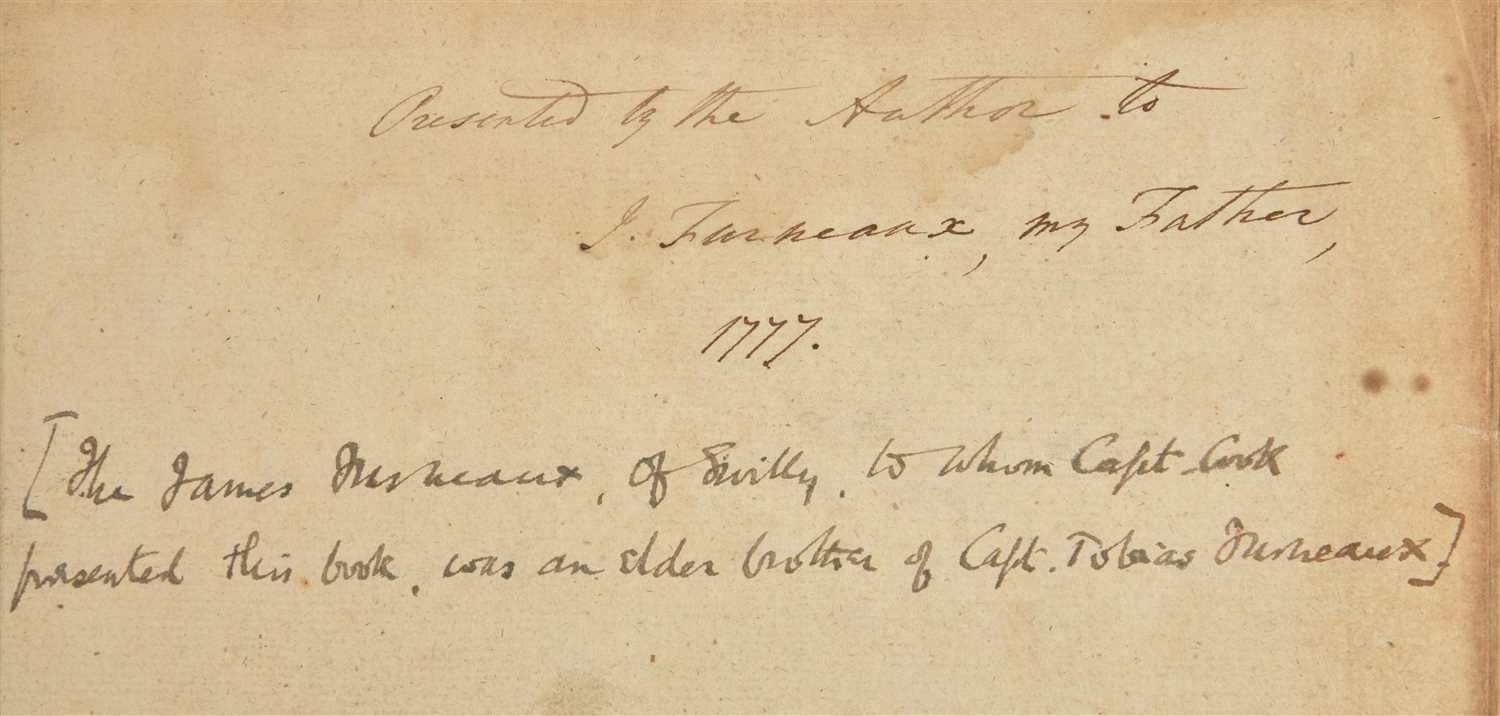 Presented by the Author to
J. Furneaux, my Father,
1777.
[The James Furneaux, of Swilly, to whom Capt. Cook
presented this book, was an elder brother of Capt. Tobias Furneaux]